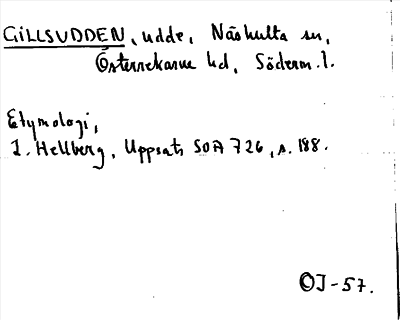 GILLSUDDEN, udde, Näshulta sn,
Österrekarne hd, Söderm. l.
Etymologi,
L. Hellberg, Uppsats SOA 726, s. 188.
OJ-57.